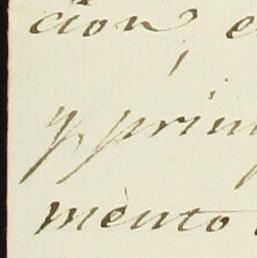 cion e
y prim
mento